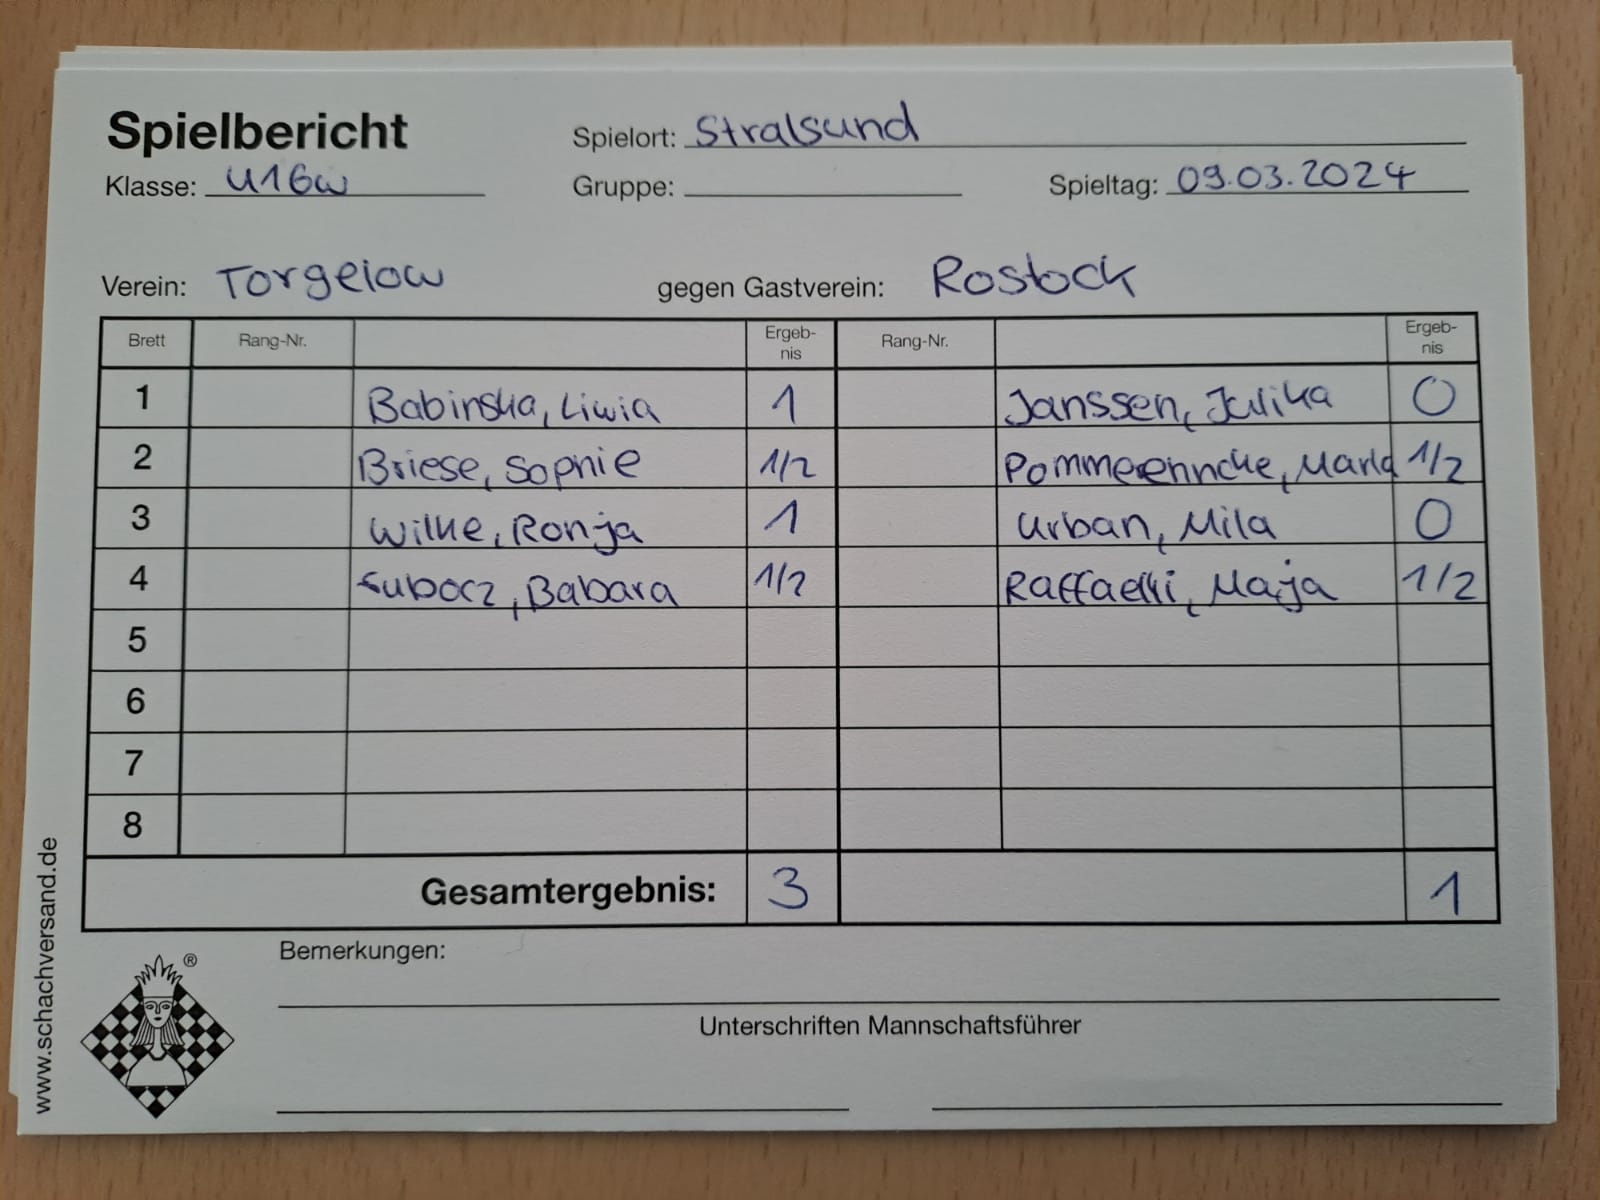 Spielbericht Spielort: Stralsund
Klasse: U16w Gruppe: Spieltag: 09.03.2024
Verein: Torgelow gegen Gastverein: Rostock
Brett Rang-Nr. Ergeb-nis Rang-Nr. Ergeb-nis
1 Babinska, Liwia 1 Janssen, Julika 0
2 Briese, Sophie 1/2 Pommerenncke, Marla 1/2
3 Wilke, Ronja 1 Urban, Mila 0
4 Babara 1/2 Raffaelli, Maja 1/2
5
6
7
8
Gesamtergebnis: 3 1
Bemerkungen:
Unterschriften Mannschaftsführer
www.schachversand.de
®